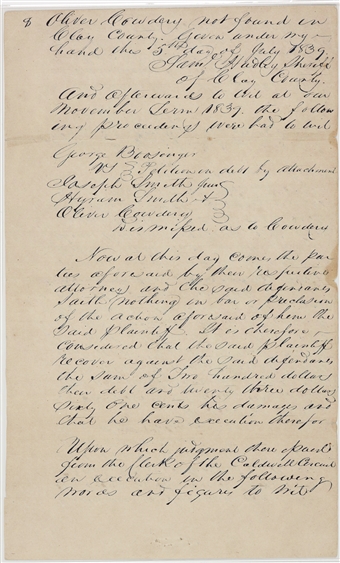 8 Oliver Cowdery not found in
Clay County. Given under my
hand this 5th day of July 1839.
Saml Hadley Sheriff
of Clay County.
And afterwards to wit at our
November Term 1839. the follow
ing proceedings were had to wit
George Boosinger
vs Petition in debt by attachment
Joseph Smith Jun
Hyrum Smith &
Oliver Cowdery
dismissed as to Cowdery
Now at this day comes the par
ties aforesaid by their respective
attorneys and the said defendants
saith nothing in bar or preclusion
of the action aforesaid of him the
said plaintiff. It is therefore
considered that the said plaintiff
recover against the said defendants
the sum of Two hundred dollars
their debt and twenty three dollars
sixty one cents his damages and
that he have execution therefor
Upon which judgment there issued
from the Clerk of the Caldwell Circuit
an execution in the following
words and figures to wit